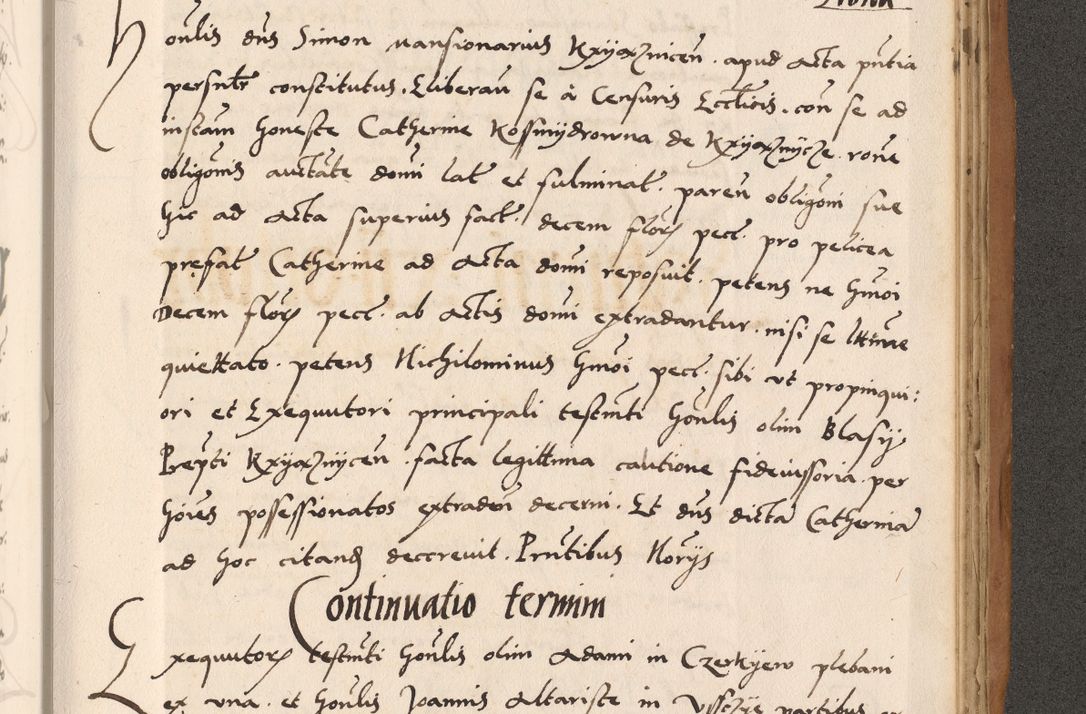 Honlis dns Simon mansionarius Kxyaxznicen. apud Acta pntia
persnlr constitutus. Lliberan se à Censuris Ecclicis. con se ad
instam honeste Catherine Kossmydrowna de Kxyaxznycze. rone
obligonis auctate domi lat et fulminat. paren obligoni sue
hic ad Acta superius fact. decem flor pecc. pro pelicea
prefat Catherine ad Acta domi reposuit. petens ne hmoi
Decem flor pecc. ab Actis domi extradantur. nisi se
quiettato. petens Nichilominus hmoi pecc. sibi ut propinqui:
ori et Exequutori principali testmti honlis olim Blasij
Prepti Kxyaxznycen. facta legittima cautione fideiussoria. per
hoies possessionatos extraden decerni. Et dns dicta Catherina
ad hoc citand decrevit. Prntibus Norijs
Continuatio termini
Exequutor testmti honlis olim Adami in Czerkyew plebani
ex una. et honlis Joannis Altariste in partibus ex